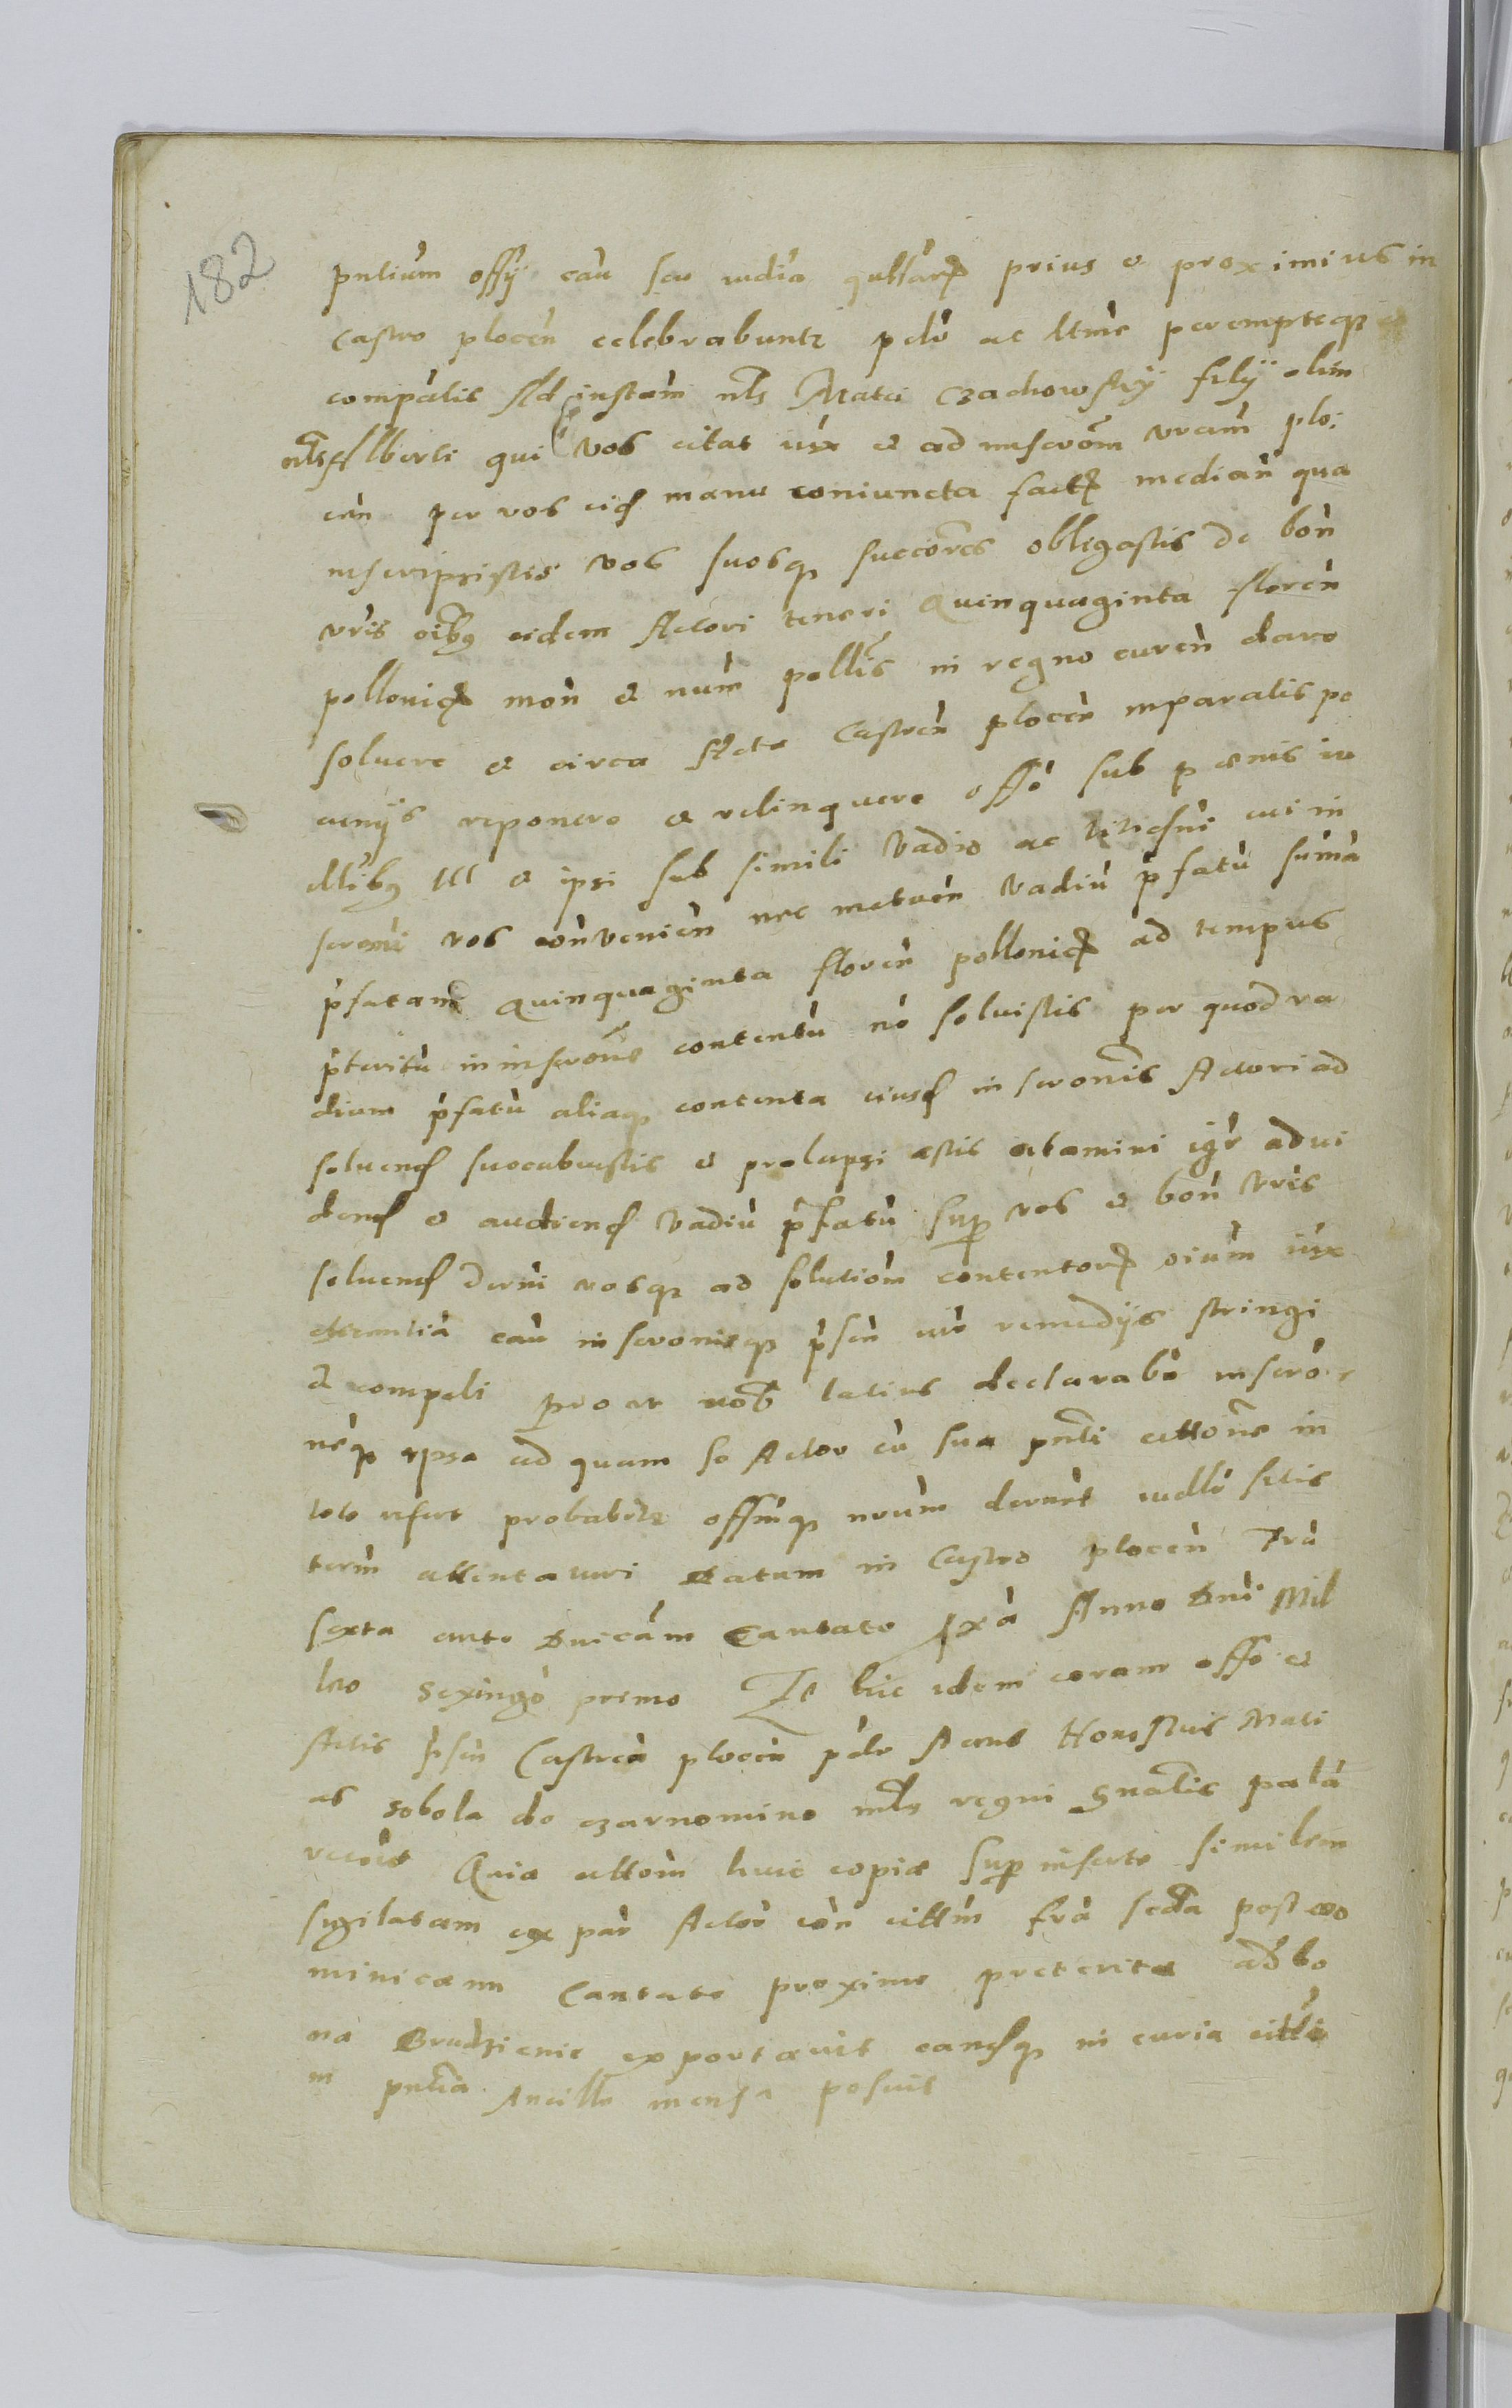 182
pntium offy cau seu iudia qullar prius et proximius in
Castro plocen celebrabuntr pclo ac ltime perempteqz
compatis Ad instam nlis Matei Czachowsky filij olim
nlis Alberti qui vos citat iux et ad inscrom vram plo:
cen per vos eid manu coniuncta fact median qua
inscripsistis vos suosqz succores obligastis de bon
vris oibz eidem Actori teneri Quinquaginta floren
pollonic mon et num pollis in regno curen dare
soluere et circa Acta Castren plocen in paratis pe
cunijs reponere et relinquere offo sub pœnis in
ipsi sub simili vadio ac
vos convenien nec metuen vadiu pfatu suma
pfatam Quinquaginta floren pollonic ad tempus
pteritu in inscrone contentu no soluistis per quod va
dium pfatu aliaqz contenta eiusd inscronis Actori ad
soluend succubuistis et prolapsi estis citamini igr ad vi
dend et audiend vadiu pfatu sup vos et bon vris
soluend decrni vosqz ad solutiom contentor oium iux
cau inscronisqz psen iur remedijs stringi
et compeli prout vob latius declarabit inscro
neqz ipsa ad quam se Actor cu sua pnti cittone in
toto refert probabitr offmqz vrum decrnet iudlr sitis
term attentaturi Datum in Castro plocen Fria
sexta ante Dnicam Cantate pxa Anno Dni Mil
lmo sexingo primo Et hic idem coram offo et
Actis psen Castren plocen pclr stans Honestus Mati
as sobola de czarnomino mlis regni gnalis pala
recoit Quia cittom huic copiæ sup inserte similem
sigilatam ex par Actor con cittm fria scda post do
minicam Cantate proxime preterita ad bo
na Brudzienie exportavit eandqz in curia citti
in pntia Ancille mensa posuit